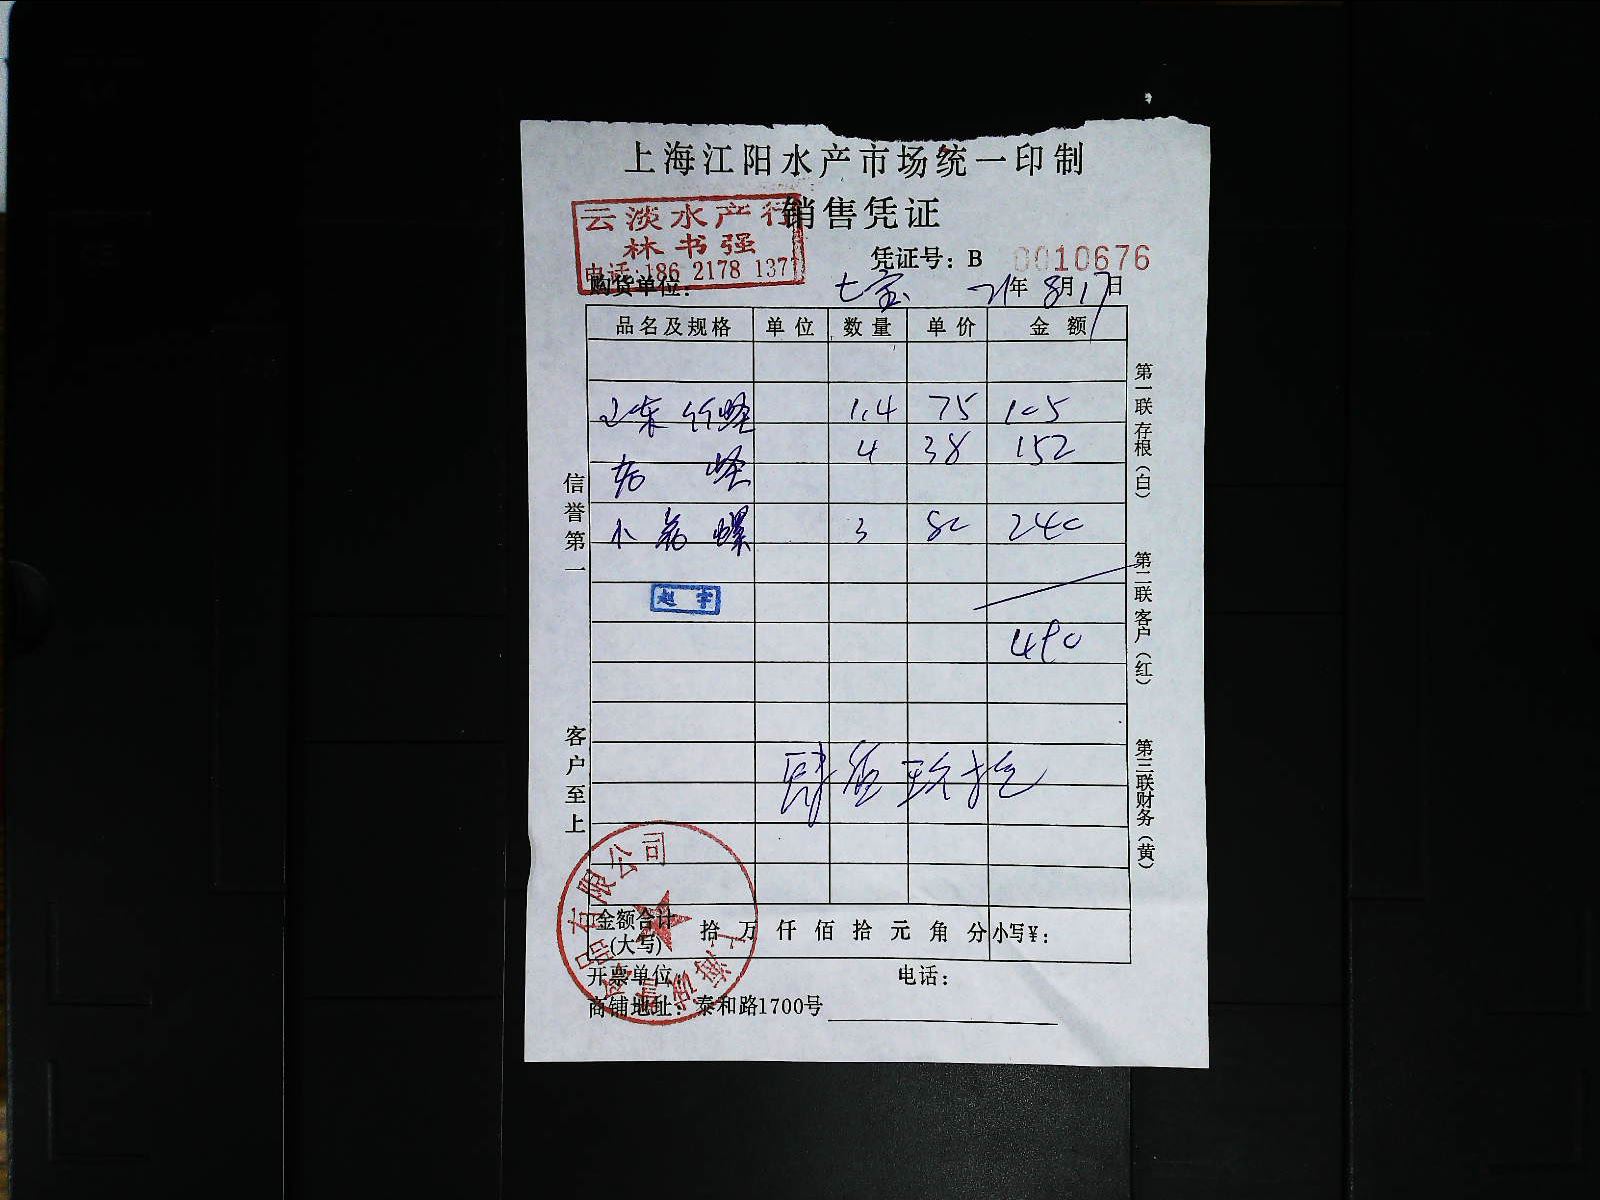 上海江阳水产市场统一印制
销售凭证
云淡水产行
林书强
电话:186 2178 1371
凭证号：B 0010676
购货单位： 七宝 21年8月17日
品名及规格 单位 数量 单价 金额
山东竹蛏 1.4 75 105
蛏 4 38 152
小 螺 3 80 240
赵宇
490
肆佰玖拾
金额合计(大写) 拾 万 仟 佰 拾 元 角 分 小写¥：
开票单位： 电话：
商铺地址：泰和路1700号
信誉第一
客户至上
第一联 存根（白）
第二联 客户（红）
第三联 财务（黄）
上海 品有限公司